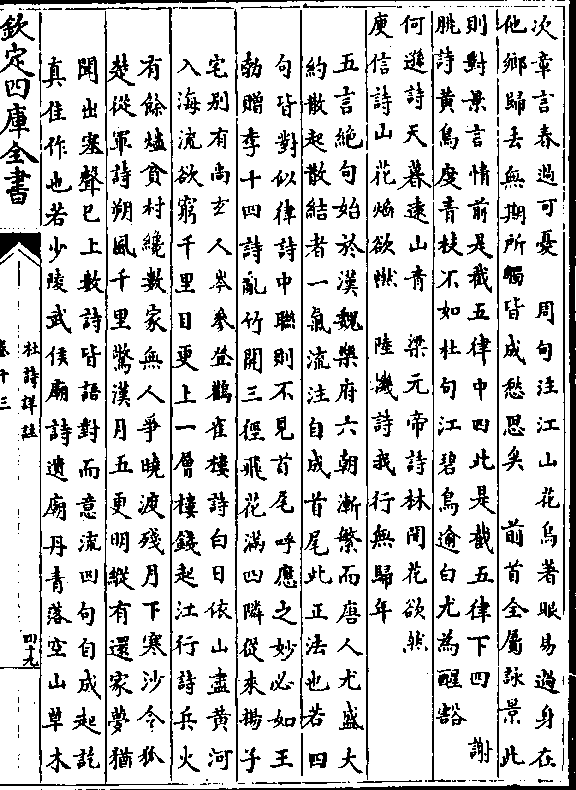 次章言春過可憂　周句注江山花鳥著眼易過身在
他鄉歸去無期所觸皆成愁思矣　前首全屬詠景此
則對景言情前是截五律中四此是截五律下四　謝
脁詩黃鳥度青枝不如杜句江碧鳥逾白尤為醒豁
何遜詩天暮遠山青　梁元帝詩林間花欲然
庾信詩山花焰欲燃　陸機詩我行無歸年
五言絶句始於漢魏樂府六朝漸繁而唐人尤盛大
約散起散結者一氣流注自成首尾此正法也若四
句皆對似律詩中聯則不見首尾呼應之妙必如王
勃贈李十四詩亂竹開三徑飛花滿四隣從來揚子
宅别有尚𤣥人岑參登鸛雀樓詩白日依山盡黃河
入海流欲窮千里目更上一層樓錢起江行詩兵火
有餘燼貧村纔數家無人爭曉渡殘月下寒沙令狐
楚從軍詩朔風千里驚漢月五更明縱有還家夢猶
聞出塞聲已上數詩皆語對而意流四句自成起訖
真佳作也若少陵武侯廟詩遺廟丹青落空山草木
欽定四庫全書
杜詩詳註
卷十三
四十九